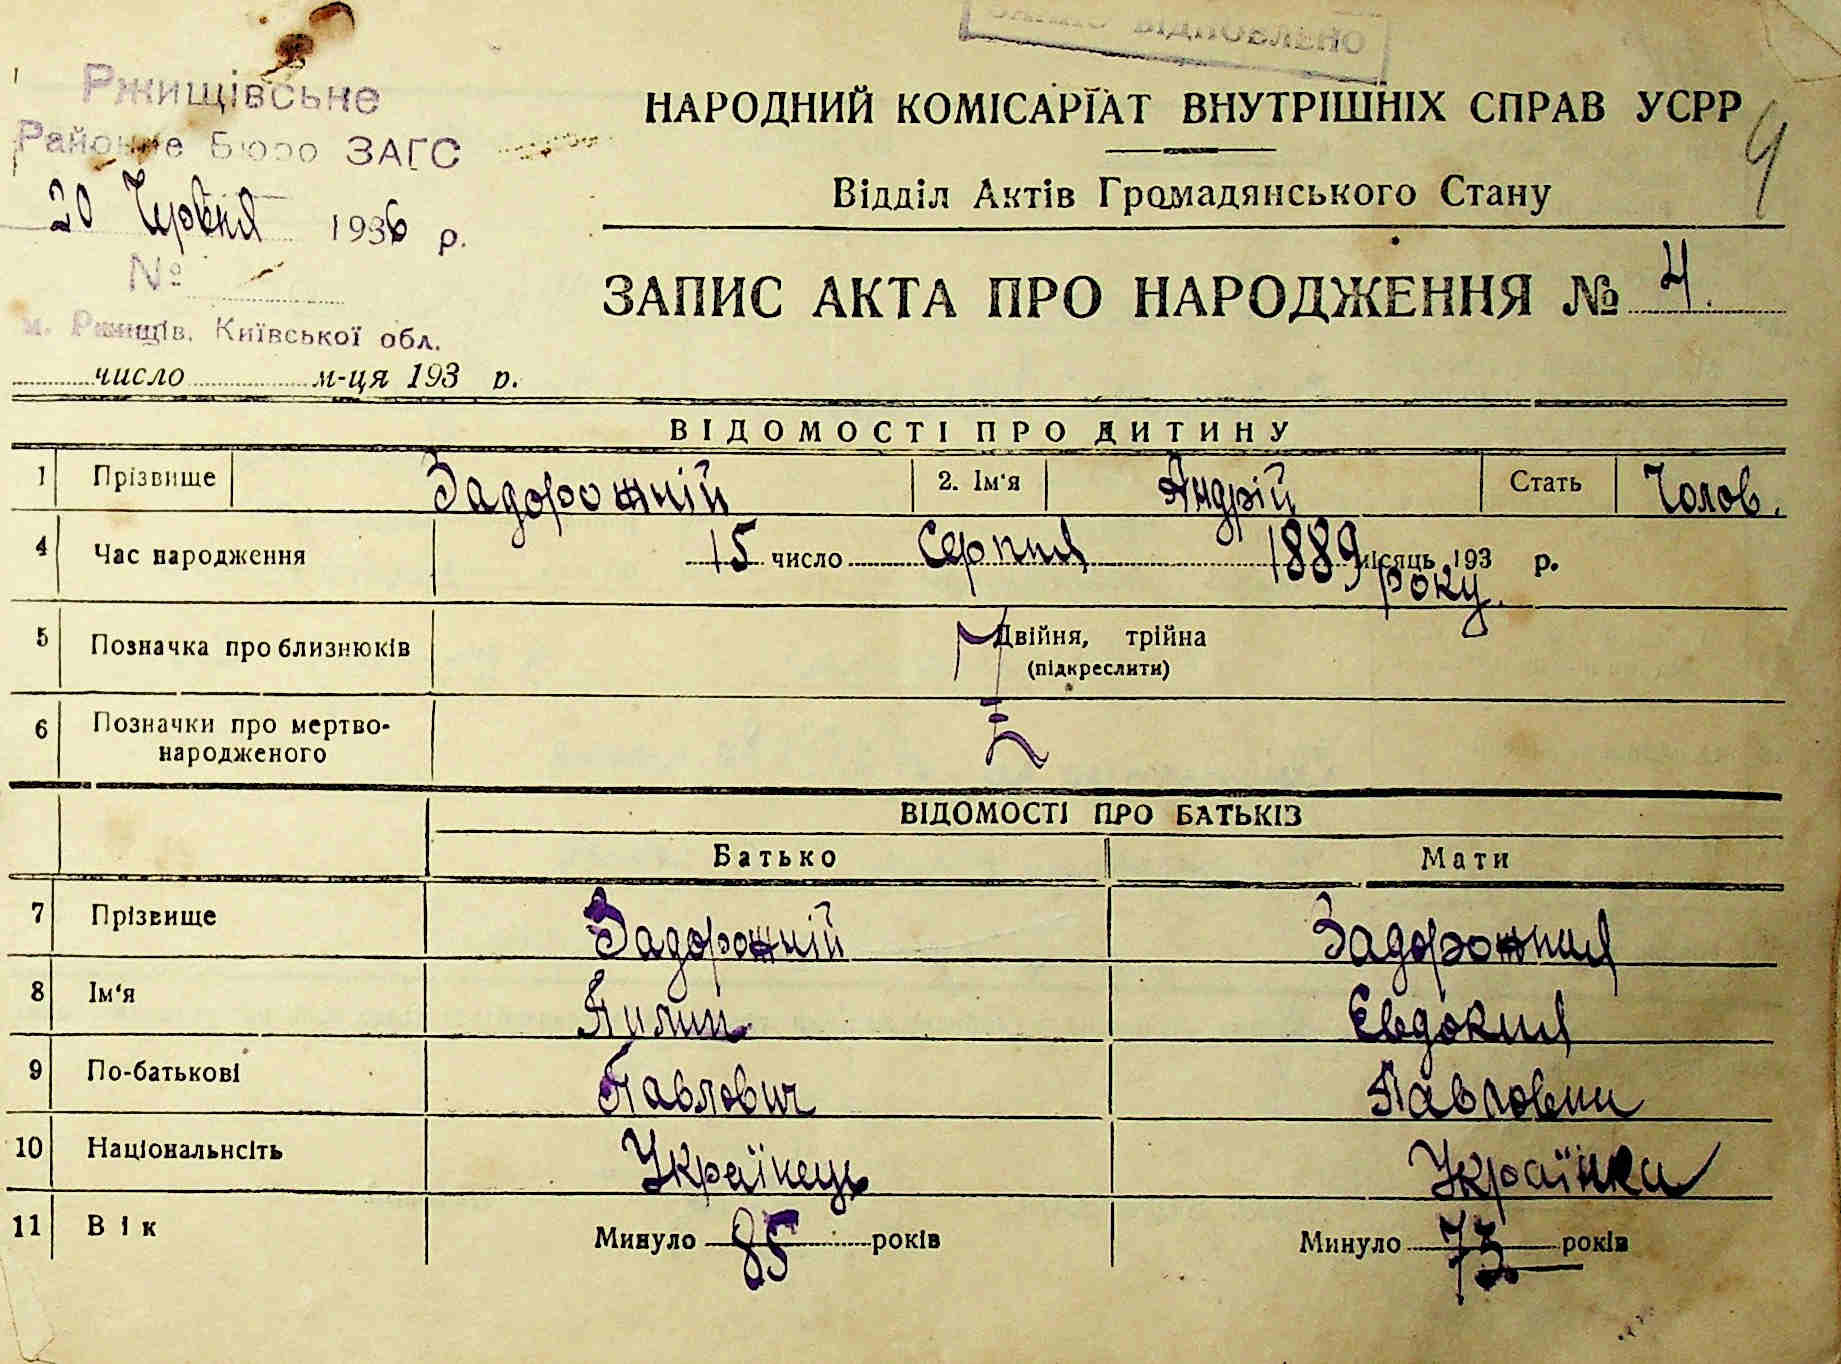 Ржищівське
Районне Бюро ЗАГС
20 Червня 1936 р.
№
м. Ржищів, Київської обл.
число м-ця 193 р.
НАРОДНИЙ КОМІСАРІАТ ВНУТРІШНІХ СПРАВ УСРР
4
Відділ Актів Громадянського Стану
ЗАПИС АКТА ПРО НАРОДЖЕННЯ № 4.
ВІДОМОСТІ ПРО ДИТИНУ
1 Прізвище Задорожній 2. Ім'я Андрій Стать Чолов.
4 Час народження 15 число Серпня 1889 місяць 193 р.
року.
5 Позначка про близнюків Двійня, трійна
(підкреслити)
6 Позначки про мертво-
народженого
ВІДОМОСТІ ПРО БАТЬКІЗ
Батько Мати
7 Прізвище Задорожній Задорожния
8 Ім'я Пилип Євдокия
9 По-батькові Павлович Павловни
10 Національнсіть Українець Українка
11 Вік Минуло 85 років Минуло 73 років